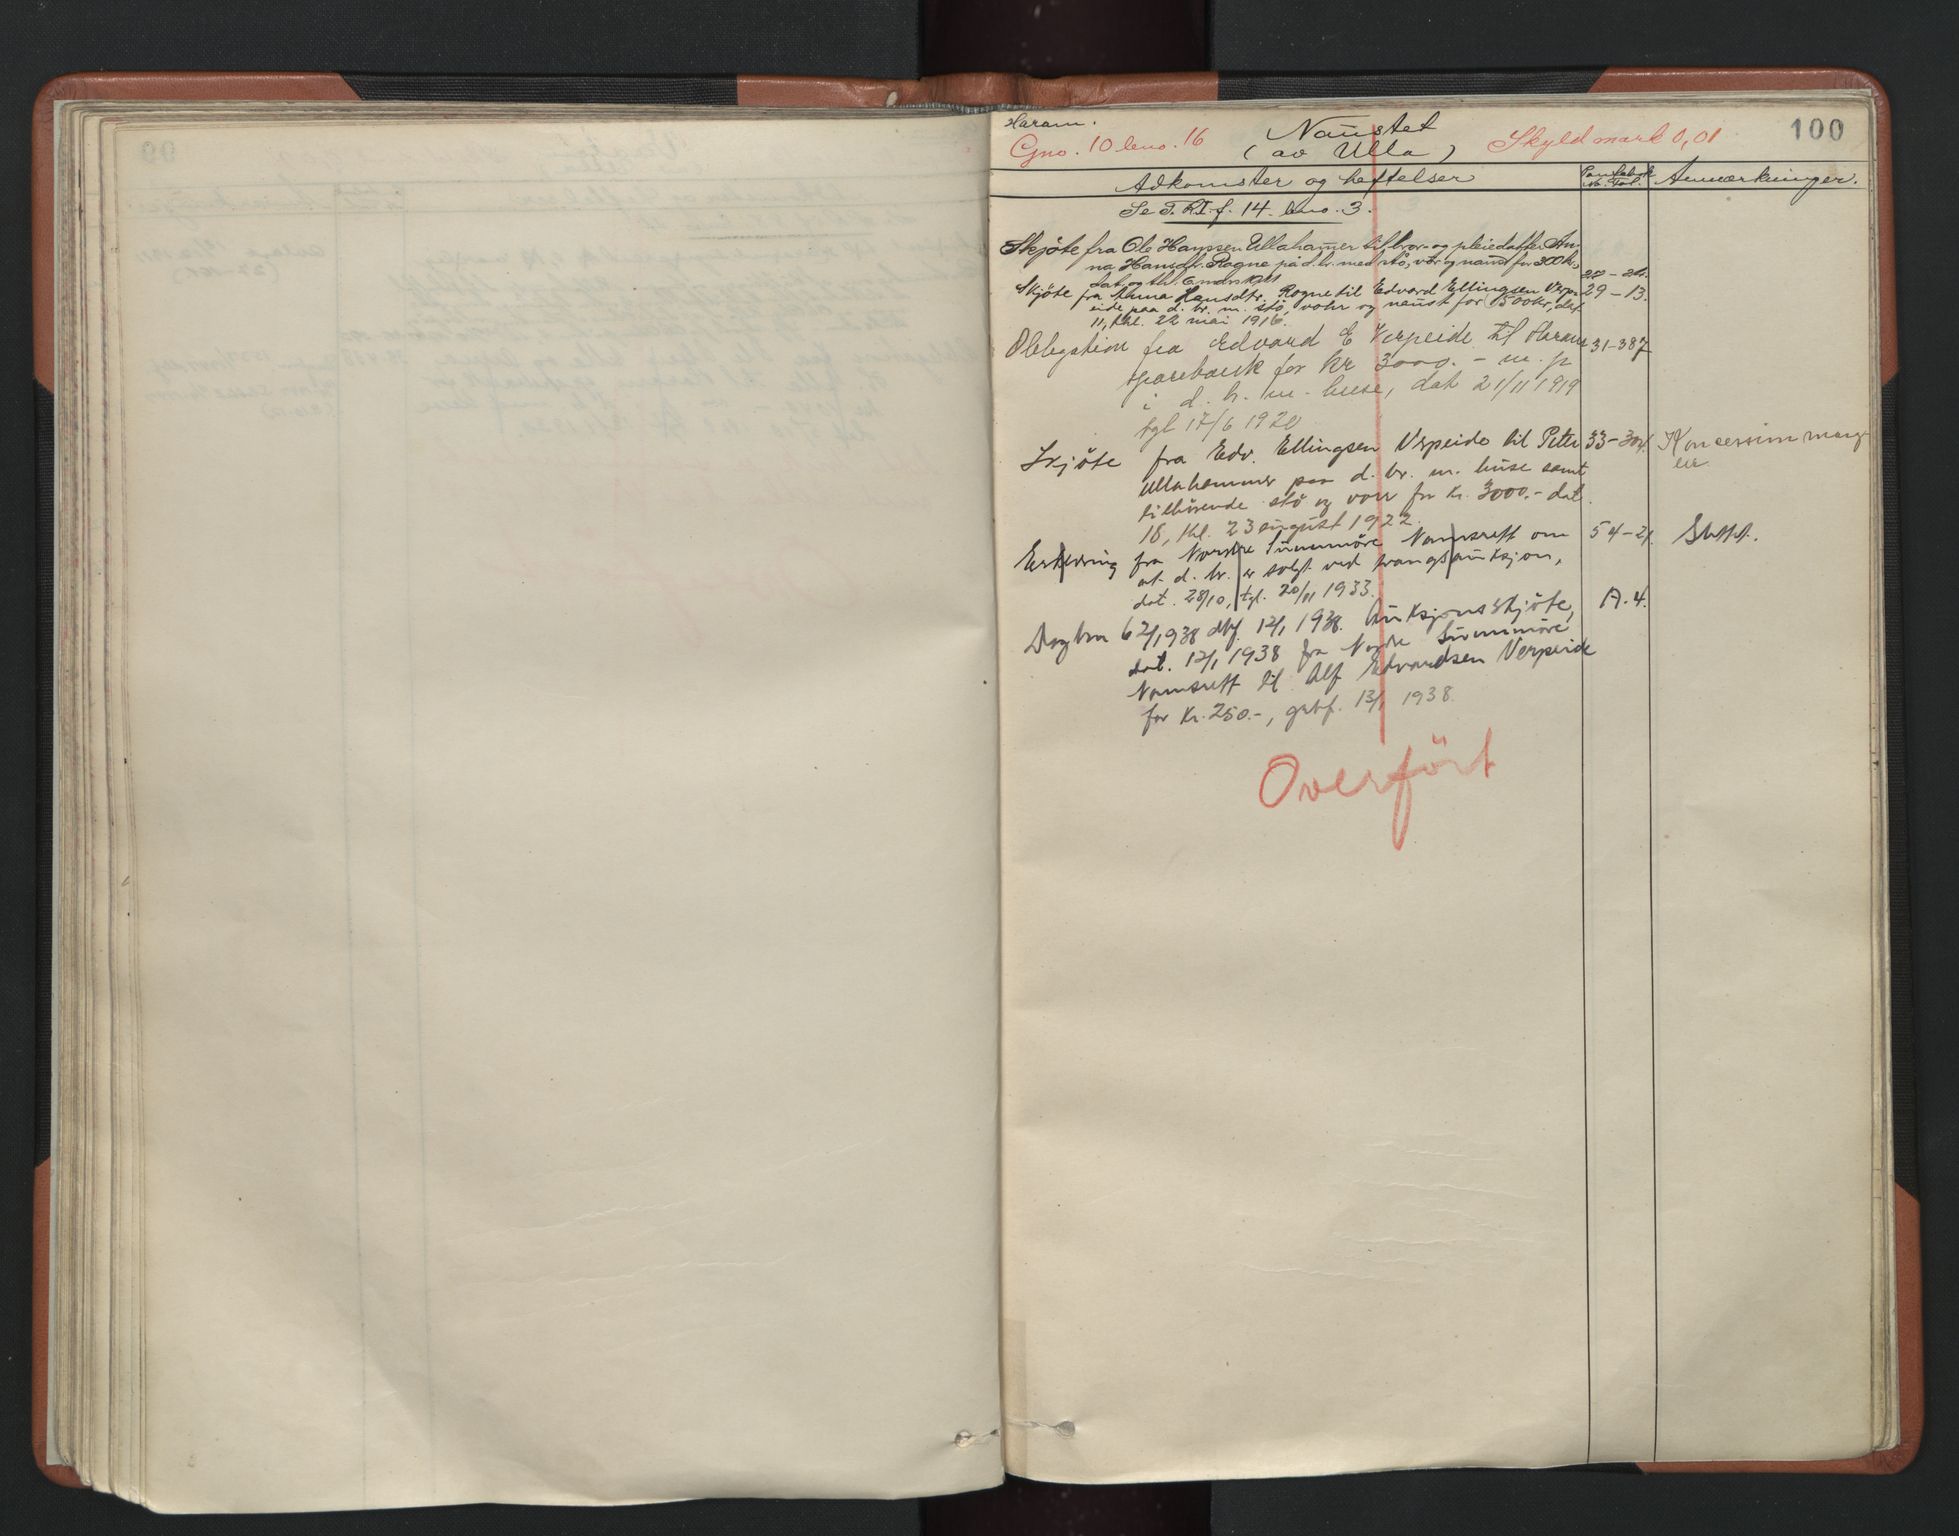 Haram.
Gno. 10 bno. 16
Naustet
(av Ulla)
Skyld mark 0,01
100
Adkomster og heftelser
Pantebok
No. Fol.
Anmærkninger.
Se P.R.I. f. 14. bno. 3.
Skjöte fra Ole Hanssen Ullahamer til bror- og pleiedatter An-
na Hansdtr. Rogne på d. br. med stö, vor og naust for 300 kr.,
dat. og thl.
Skjöte fra Anna Hansdtr. Rogne til Edvard Ellingsen Verp-
29-13.
eide paa d. br. m. stö, vohr og naust for 1500 kr, dat.
11, thl. 22 mai 1916.
Obligation fra Edvard E Verpeide til Harams
31-387
sparebank for kr 3000.- m. p
i d. br. m. huse, dat 21/11 1919
tgl 17/6 1920
Skjöte fra Edv. Ellingsen Verpeide til Peter
33-304.
Koncession mang-
ler.
Ullahammer paa d. br. m. huse samt
tilhörende stö og vorr for kr. 3000.- dat
18, thl. 23 august 1922.
Erklæring fra Nordre Sunnmöre Namsrett om
54-21.
Slettet.
at d. br. er solgt ved tvangsauksjon,
dat. 28/10, tgl. 20/11 1933.
A.4.
Dagbnr 62/1938 dbf. 12/1 1938. Auksjonsskjöte,
dat. 12/1 1938 fra Nordre Sunnmöre
Namsrett til Alf Edvardsen Verpeide
for kr. 250.-, grbf. 13/1 1938.
Overfört